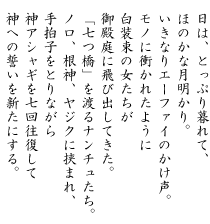 日は、とっぷり暮れて、
ほのかな月明かり。
いきなりエーファイのかけ声。
モノに衝かれたように
白装束の女たちが
御殿庭に飛び出してきた。
「七つ橋」を渡るナンチュたち。
ノロ、根神、ヤジクに挟まれ、
手拍子をとりながら
神アシャギを七回往復して
神への誓いを新たにする。